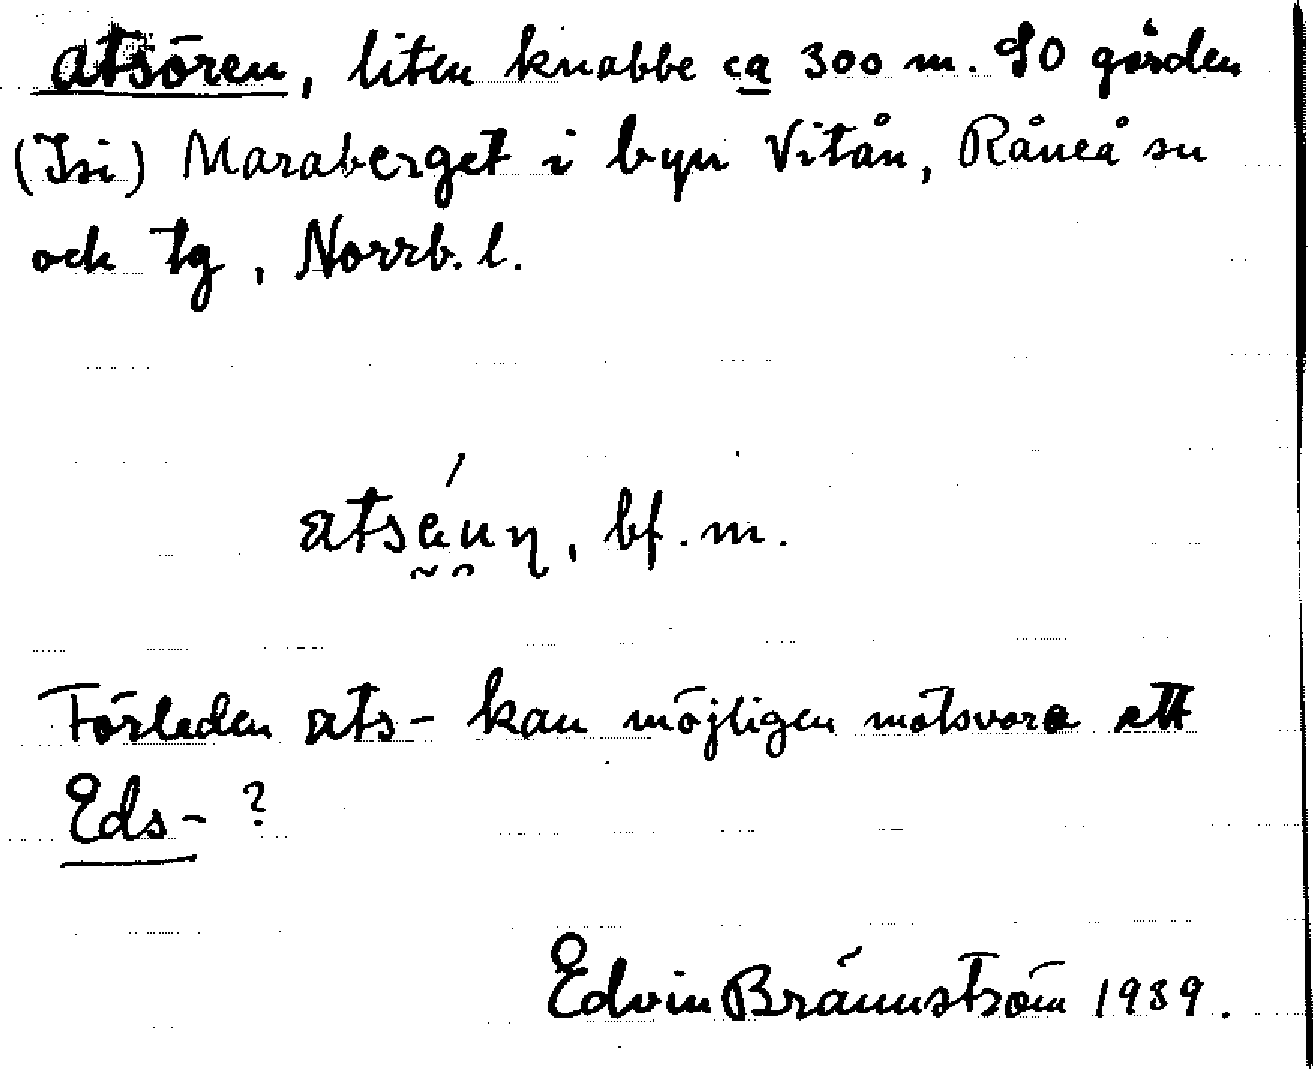 atsören, liten knabbe ca 300 m. SO gården
(Isi) Maraberget i byn Vitån, Råneå sn
och tg, Norrb. l.
bf. m.
Förleden ats- kan möjligen motsvara ett
Eds- ?
Edvin Brännström 1939.